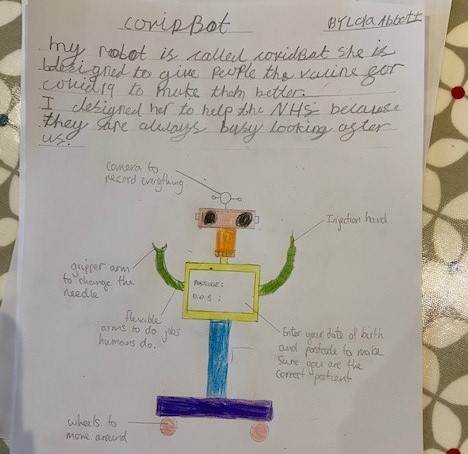 covidBot
BY Lola Abbott
My robot is called covidBot she is
designed to give people the vacine for
covid19 to make them better.
I designed her to help the NHS because
they sare always busy looking after
us.
camera to
record everything
Injection hand
gripper arm
to change the
needle
flexible
arms to do jobs
humans do.
POSTCODE:
D.O.B :
Enter your date of birth
and postcode to make
sure you are the
correct patient
wheels to
move around